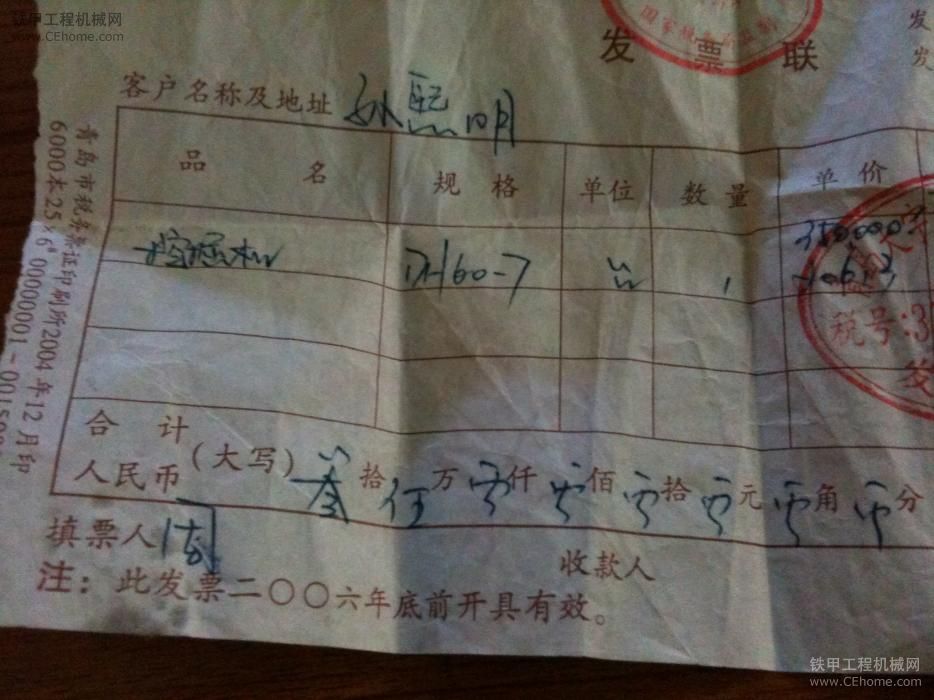 铁甲工程机械网
www.CEhome.com
国家税务
发票联
发
发
客户名称及地址 孙熙明
品名 规格 单位 数量 单价
挖掘机 -7 350,000
税号:3
发
合计
人民币 (大写) 叁拾伍万零仟零佰零拾零元零角零分
填票人 收款人
注：此发票二〇〇六年底前开具有效。
青岛市税务票证印刷所2004年12月印
6000本25×6" 00000001-0015
铁甲工程机械网
www.CEhome.com